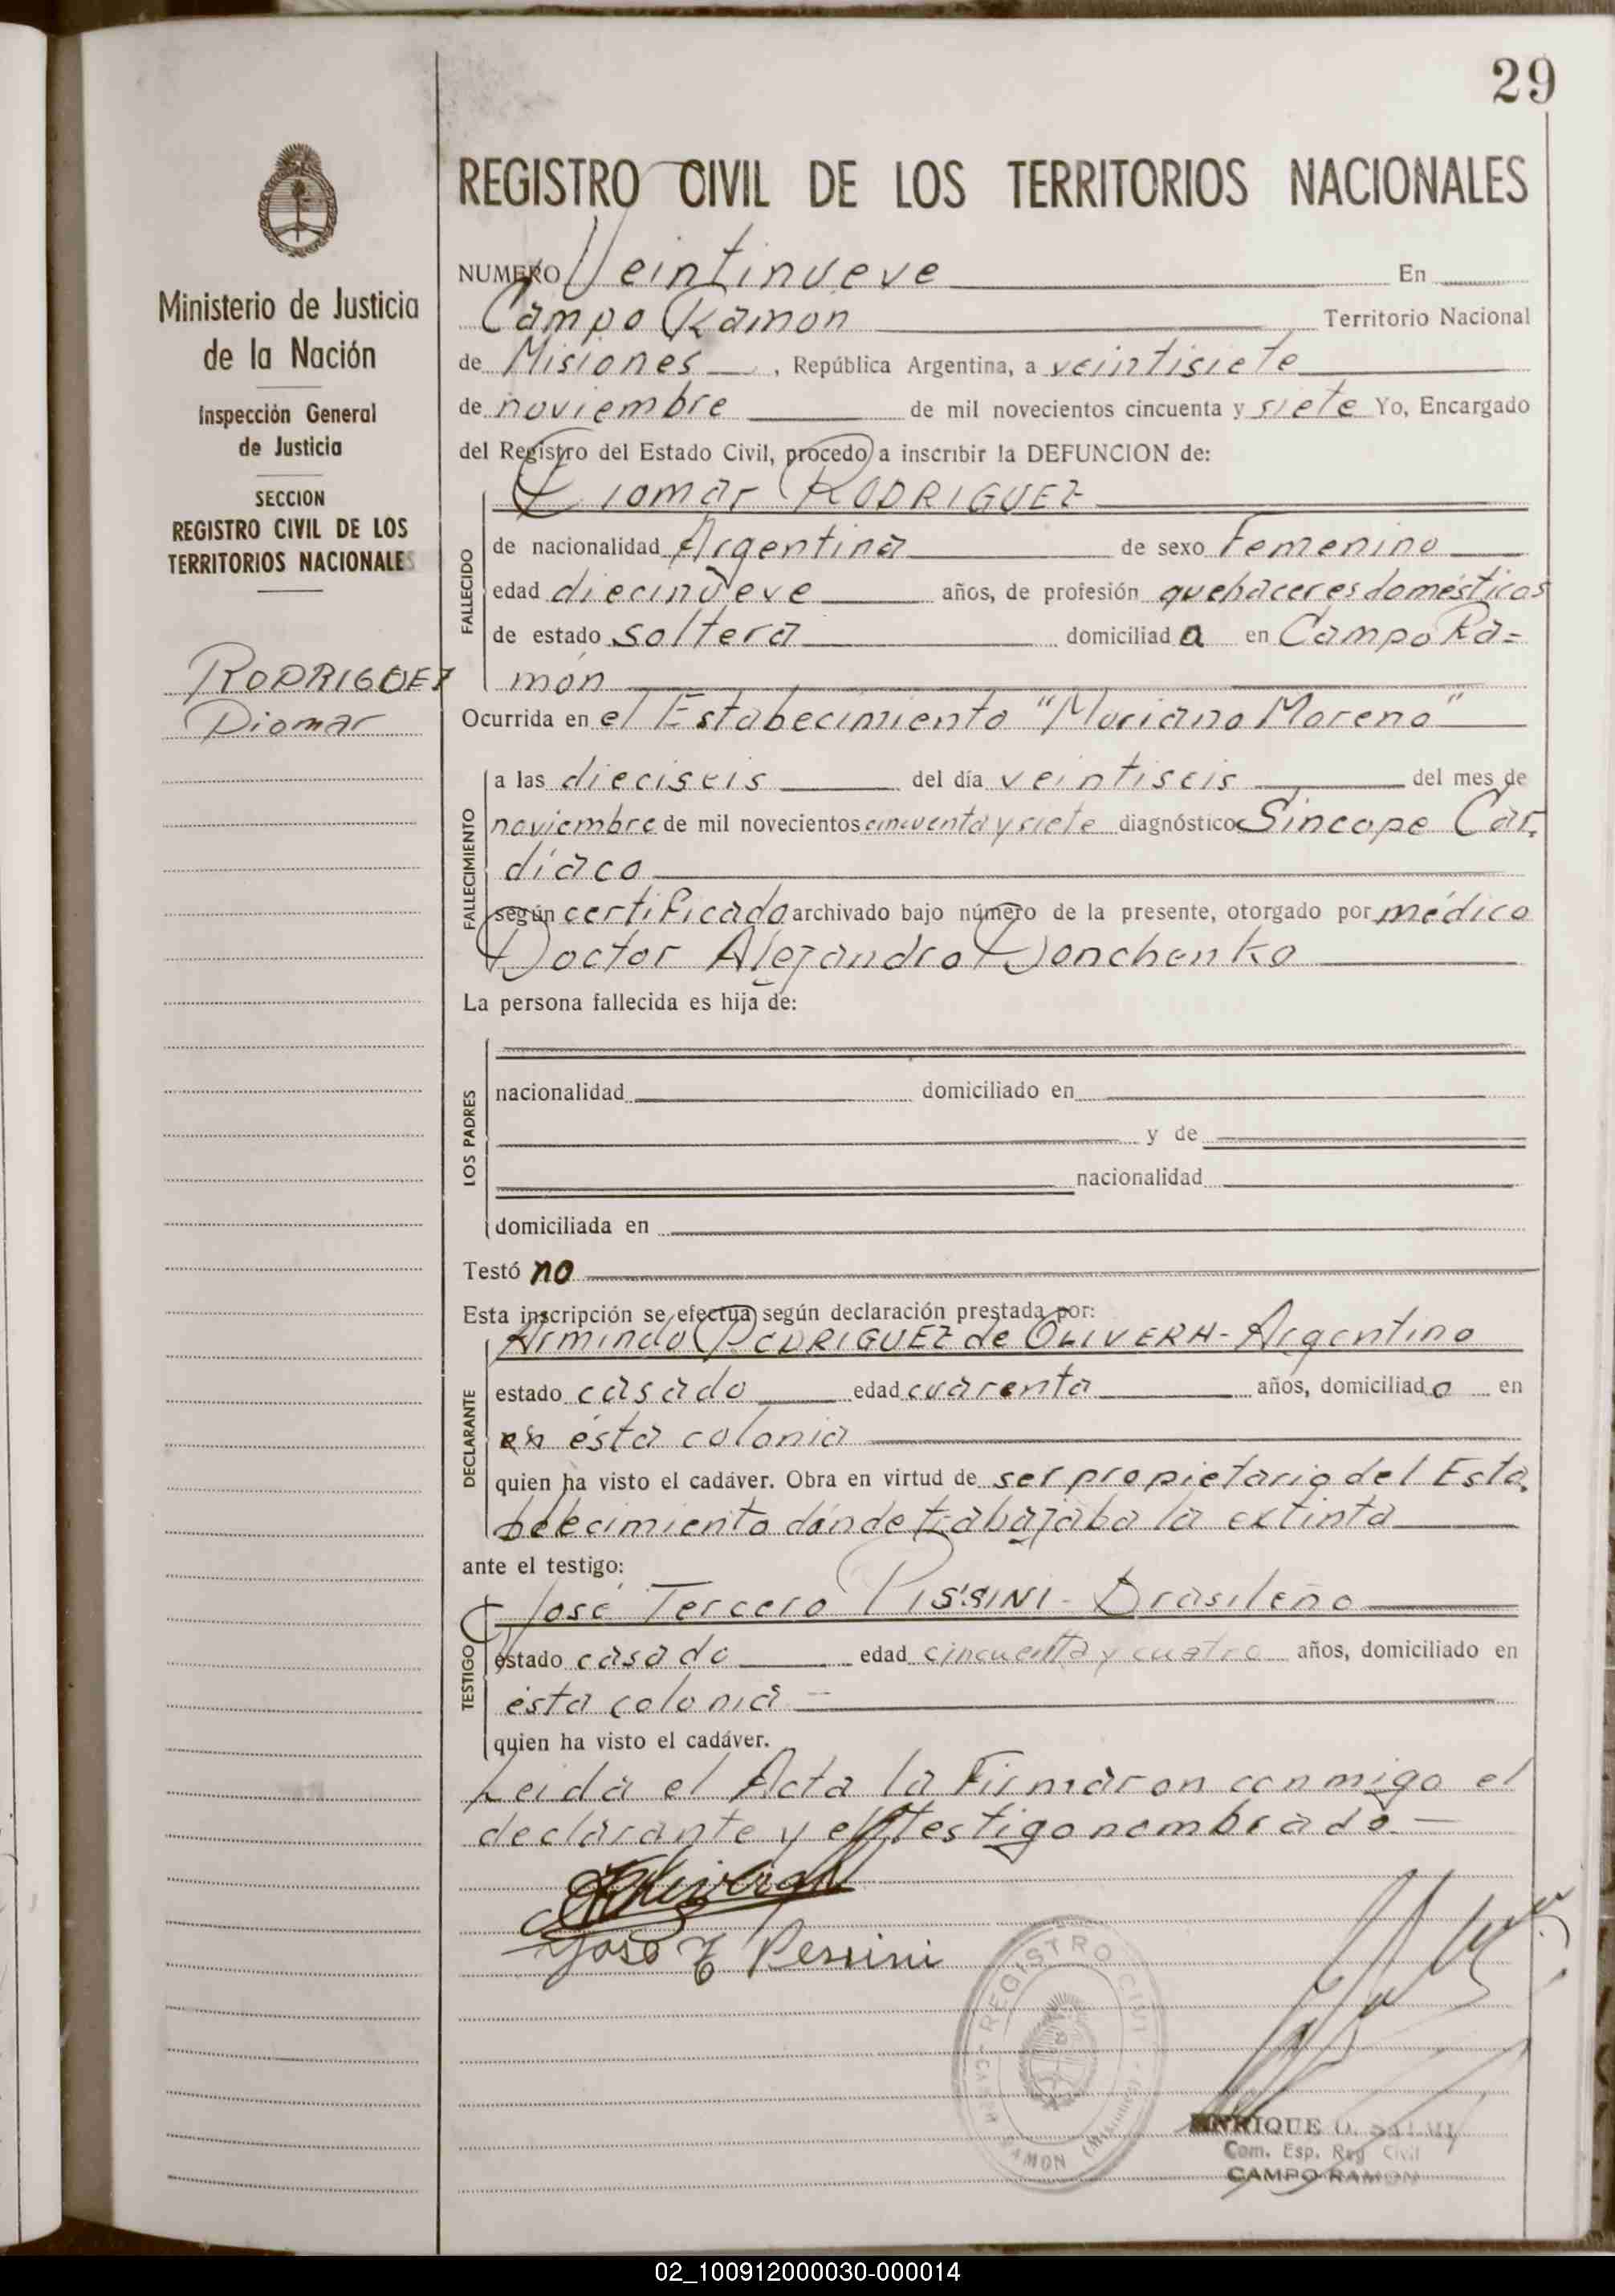 29
REGISTRO CIVIL DE LOS TERRITORIOS NACIONALES
Ministerio de Justicia
de la Nación
Inspección General
de Justicia
SECCION
REGISTRO CIVIL DE LOS
TERRITORIOS NACIONALES
RODRIGUEZ
Diomar
NUMERO Veintinueve En
Campo Ramón Territorio Nacional
de Misiones, República Argentina, a veintisiete
de noviembre de mil novecientos cincuenta y siete Yo, Encargado
del Registro del Estado Civil, procedo a inscribir la DEFUNCION de:
Diomar RODRIGUEZ
FALLECIDO
de nacionalidad Argentina de sexo Femenino
edad diecinueve años, de profesión quehaceres domésticos
de estado soltera domiciliada en Campo Ra=
món
Ocurrida en el Estabecimiento "Mariano Moreno"
FALLECIMIENTO
a las dieciseis del día veintiseis del mes de
noviembre de mil novecientos cincuenta y siete diagnóstico Sincope Car.
díaco
según certificado archivado bajo número de la presente, otorgado por médico
Doctor Alejandro Donchenko
La persona fallecida es hija de:
LOS PADRES
nacionalidad domiciliado en
y de
nacionalidad
domiciliada en
Testó no
Esta inscripción se efectúa según declaración prestada por:
DECLARANTE
Armindo RODRIGUEZ de OLIVERA - Argentino
estado casado edad cuarenta años, domiciliado en
en ésta colonia
quien ha visto el cadáver. Obra en virtud de ser propietario del Esta.
belecimiento dónde trabajaba la extinta
ante el testigo:
TESTIGO
José Tercero PISSINI - Brasileño
estado casado edad cincuenta y cuatro años, domiciliado en
ésta colonia
quien ha visto el cadáver.
Leida el Acta la Firmaron conmigo el
declarante y el testigo nombrado
Jose T Pessini
REGISTRO CIVIL
CAMPO RAMON (Misiones)
ENRIQUE O.
Com. Esp. Reg Civil
CAMPO RAMON
02_100912000030-000014